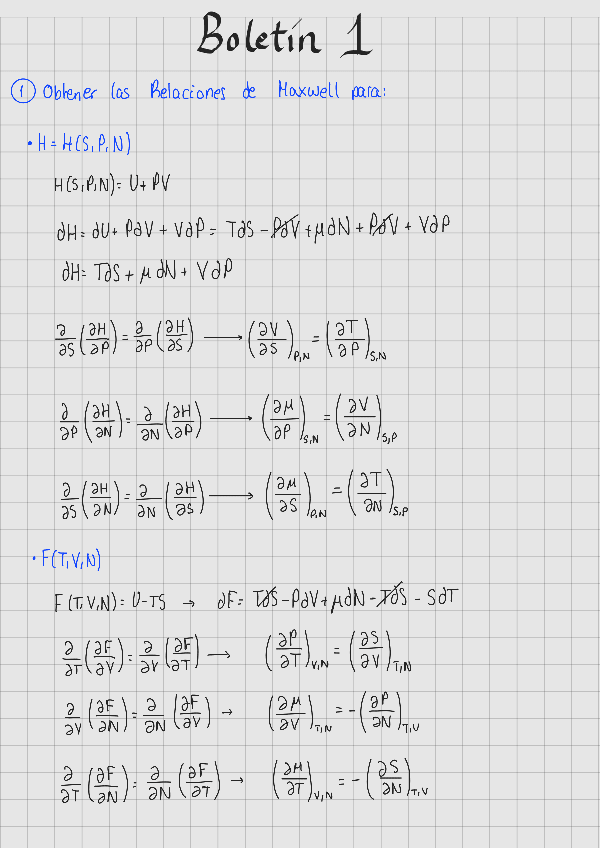 Boletín 1
① Obtener las Relaciones de Maxwell para:
• H = H(S,P,N)
H(S,P,N) = U + PV
∂H = ∂U + P∂V + V∂P = T∂S - P∂V + μ∂N + P∂V + V∂P
∂H = T∂S + μ∂N + V∂P
∂/∂S (∂H/∂P) = ∂/∂P (∂H/∂S) ⟶ (∂V/∂S)_P,N = (∂T/∂P)_S,N
∂/∂P (∂H/∂N) = ∂/∂N (∂H/∂P) ⟶ (∂μ/∂P)_S,N = (∂V/∂N)_S,P
∂/∂S (∂H/∂N) = ∂/∂N (∂H/∂S) ⟶ (∂μ/∂S)_P,N = (∂T/∂N)_S,P
• F(T,V,N)
F(T,V,N) = U - TS → ∂F = T∂S - P∂V + μ∂N - T∂S - S∂T
∂/∂T (∂F/∂V) = ∂/∂V (∂F/∂T) → (∂P/∂T)_V,N = (∂S/∂V)_T,N
∂/∂V (∂F/∂N) = ∂/∂N (∂F/∂V) → (∂μ/∂V)_T,N = -(∂P/∂N)_T,V
∂/∂T (∂F/∂N) = ∂/∂N (∂F/∂T) → (∂μ/∂T)_V,N = -(∂S/∂N)_T,V